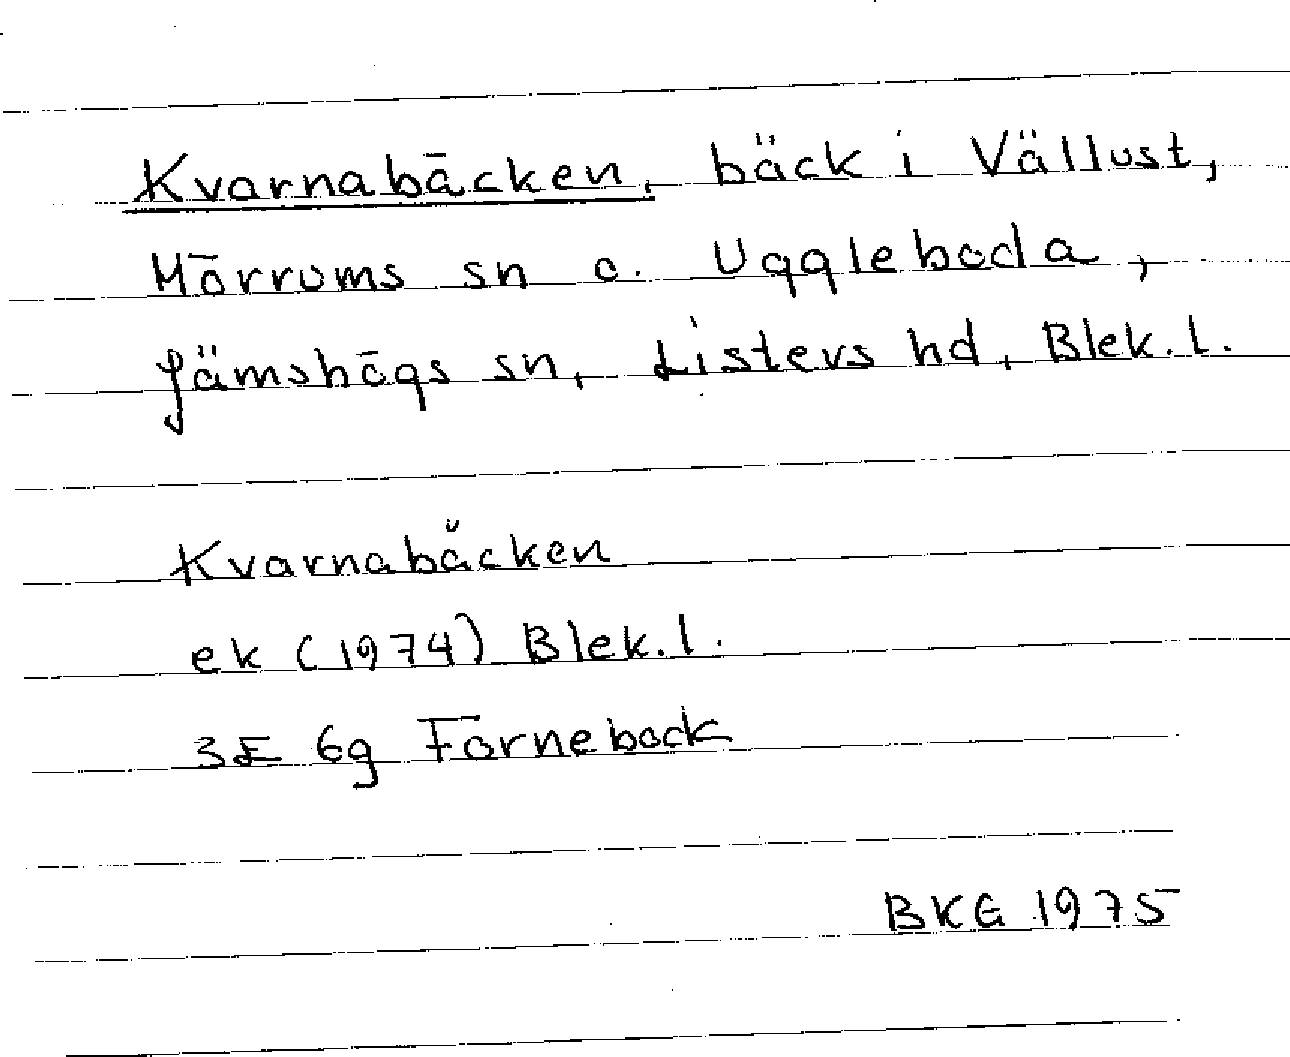 Kvarnabäcken, bäck i Vällust,
Mörrums sn o. Uggleboda,
Jämshögs sn, Listers hd, Blek. l.
Kvarnabäcken
ek (1974) Blek. l.
3E 6g Fornebock
BKG 1975